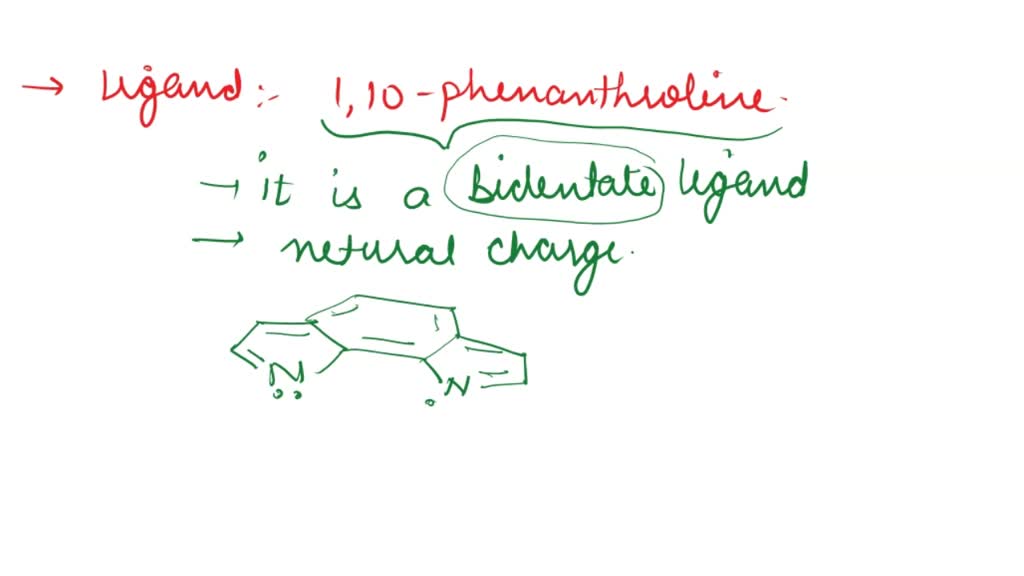 → Ligand:- 1,10-phenanthroline.
→ it is a bidentate ligand
→ netural charge.
N
N